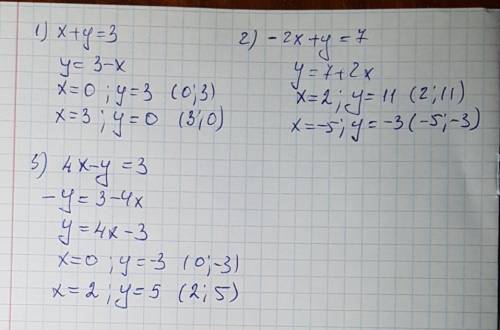 1) x+y=3
y=3-x
x=0; y=3 (0;3)
x=3; y=0 (3;0)
2) -2x+y=7
y=7+2x
x=2; y=11 (2;11)
x=-5; y=-3 (-5;-3)
3) 4x-y=3
-y=3-4x
y=4x-3
x=0; y=-3 (0;-3)
x=2; y=5 (2;5)